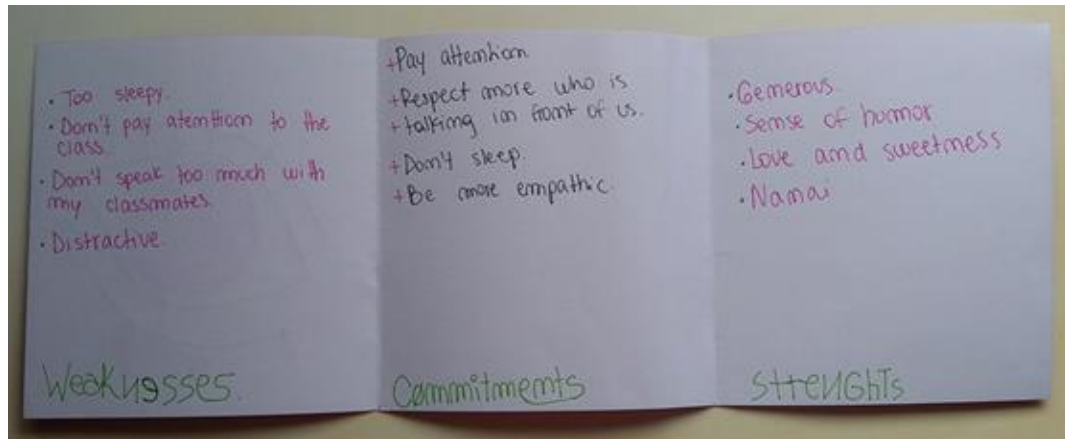 • Too sleepy.
• Don't pay atemttion to the
class.
• Don't speak too much with
my classmates.
• Distractive.
Weaknesses.
+Pay attention
+Respect more who is
+talking in front of us.
+Don't sleep.
+Be more empathic.
Commitments
•Generous
•Sense of homor
•Love and sweetness
•Nanai
Strenghts